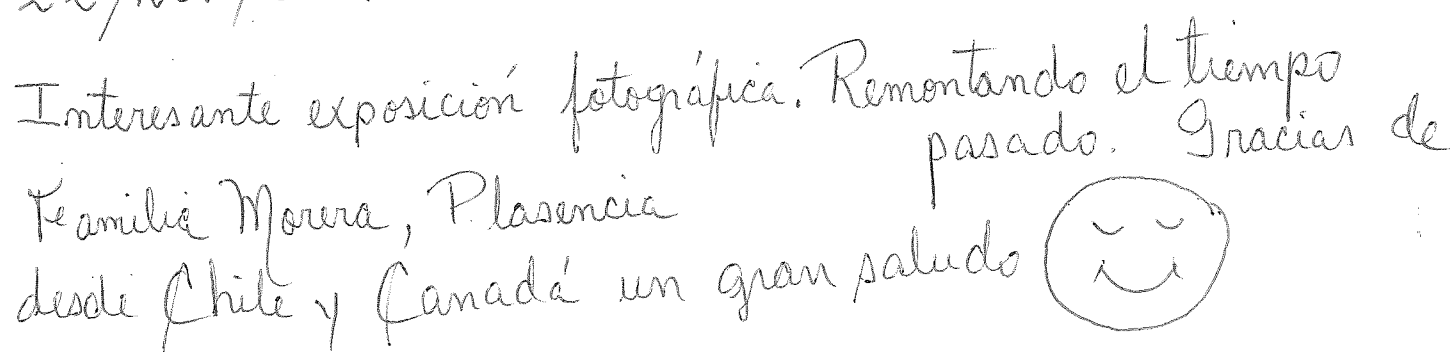 Interesante exposición fotográfica. Remontando el tiempo
pasado. Gracias de
Familia Morera, Plasencia
desde Chile y Canadá un gran saludo